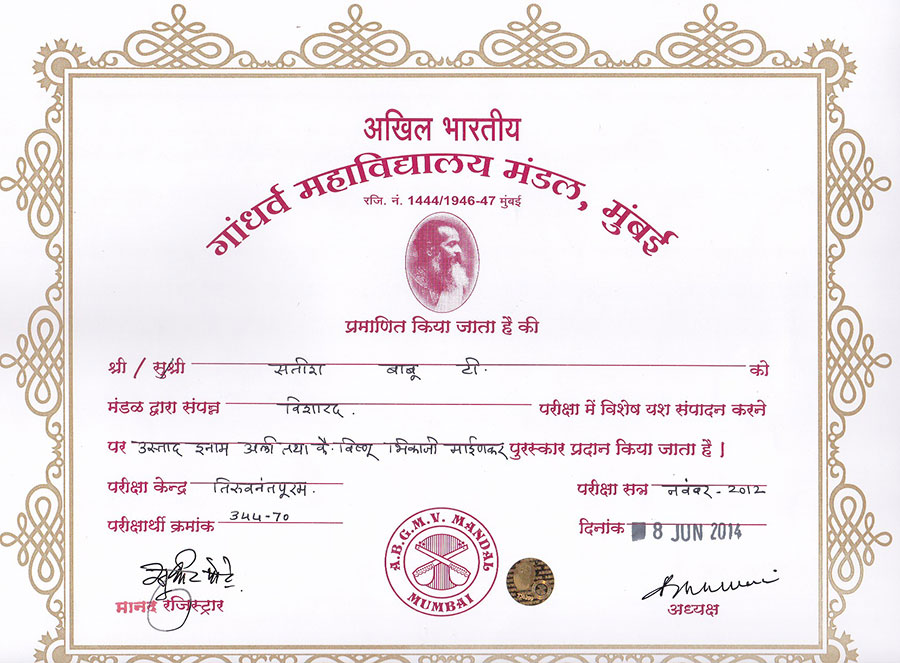 अखिल भारतीय
गांधर्व महाविद्यालय मंडल, मुंबई
रजि. नं. 1444/1946-47 मुंबई
प्रमाणित किया जाता है की
श्री / सुश्री सतीश बाबू टी. को
मंडळ द्वारा संपन्न विशारद. परीक्षा में विशेष यश संपादन करने
पर उस्ताद इनाम अली तथा कै. विष्णू भिकाजी माईणकर पुरस्कार प्रदान किया जाता है |
परीक्षा केन्द्र तिरुवनंतपूरम. परीक्षा सत्र नवंबर-2012
परीक्षार्थी क्रमांक 344-70 दिनांक 8 JUN 2014
A.B.G.M.V. MANDAL
MUMBAI
मानद रजिस्ट्रार
अध्यक्ष